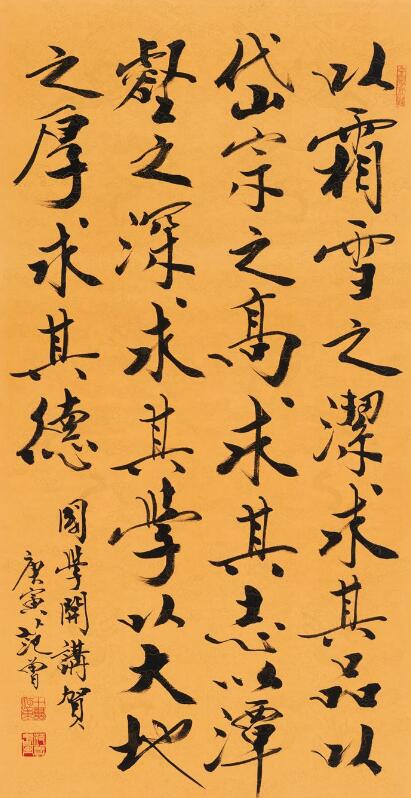 以霜雪之潔求其品以
岱宗之高求其志以潭
壑之深求其學以大地
之厚求其德
國學開講賀
庚寅范曾